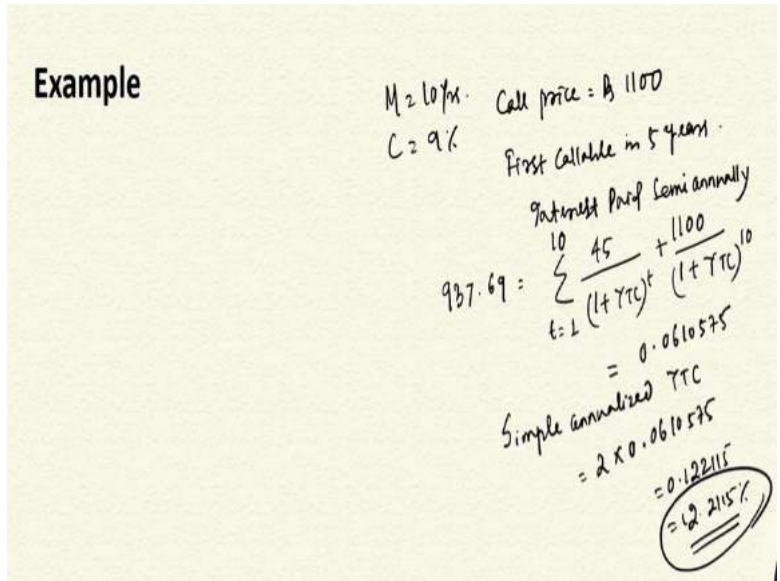 Example
M = 10 yrs. Call price = ₨ 1100
C = 9%
First Callable in 5 years.
Interest Paid Semi annually
937.69 = 10 Σ t=1 45 / (1+YTC)^t + 1100 / (1+YTC)^10
= 0.0610575
Simple annualized YTC
= 2 x 0.0610575
= 0.122115
= 12.2115%